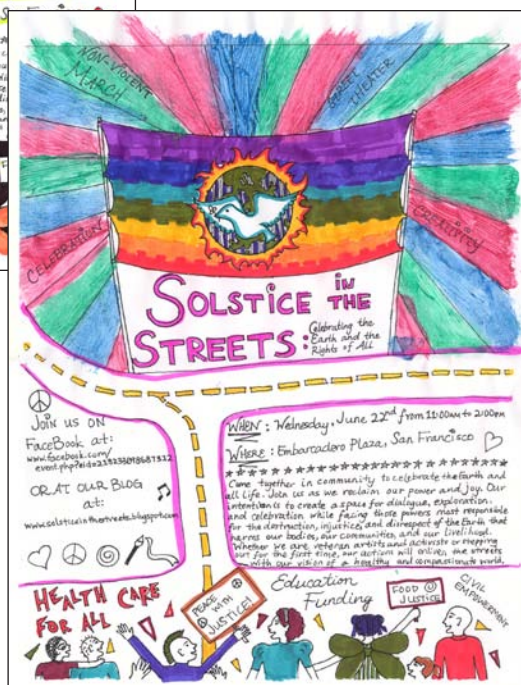 NON-VIOLENT
MARCH
STREET
THEATER
CELEBRATION
CREATIVITY
SOLSTICE IN
THE
STREETS:
Celebrating the
Earth and the
Rights of All
JOIN US ON
FACEBOOK at:
www.facebook.com/
OR AT OUR BLOG
at:
www.solsticeinthestreets.blogspot.com
WHEN: Wednesday, June 22nd from 11:00am to 2:00pm
WHERE: Embarcadero Plaza, San Francisco
Come together in community to celebrate the Earth and
all Life. Join us as we reclaim our power and joy. Our
intention is to create a space for dialogue, exploration
and celebration while facing those powers most responsible
for the destruction, injustice and disrespect of the Earth that
harms our bodies, our communities, and our livelihood.
Whether we are veteran artists and activists or stepping
out for the first time, our actions will enliven the streets
with our vision of a healthy and compassionate world.
HEALTH CARE
FOR ALL
PEACE
WITH
JUSTICE!
Education
Funding
FOOD
JUSTICE
CIVIL
EMPOWERMENT